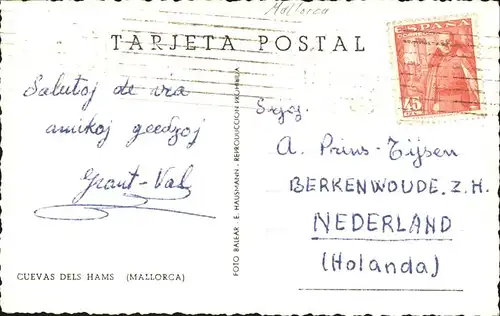 Mallorca
TARJETA POSTAL
ESPAÑA
45
CTS
Salutoj de via
amikoj geedzoj
Graut-Val
Sroj.
A. Prins-Tijsen
BERKENWOUDE. Z. H.
NEDERLAND
(Holanda)
FOTO BALEAR . E. HAUSMANN - REPRODUCCION PROHIBIDA
CUEVAS DELS HAMS (MALLORCA)